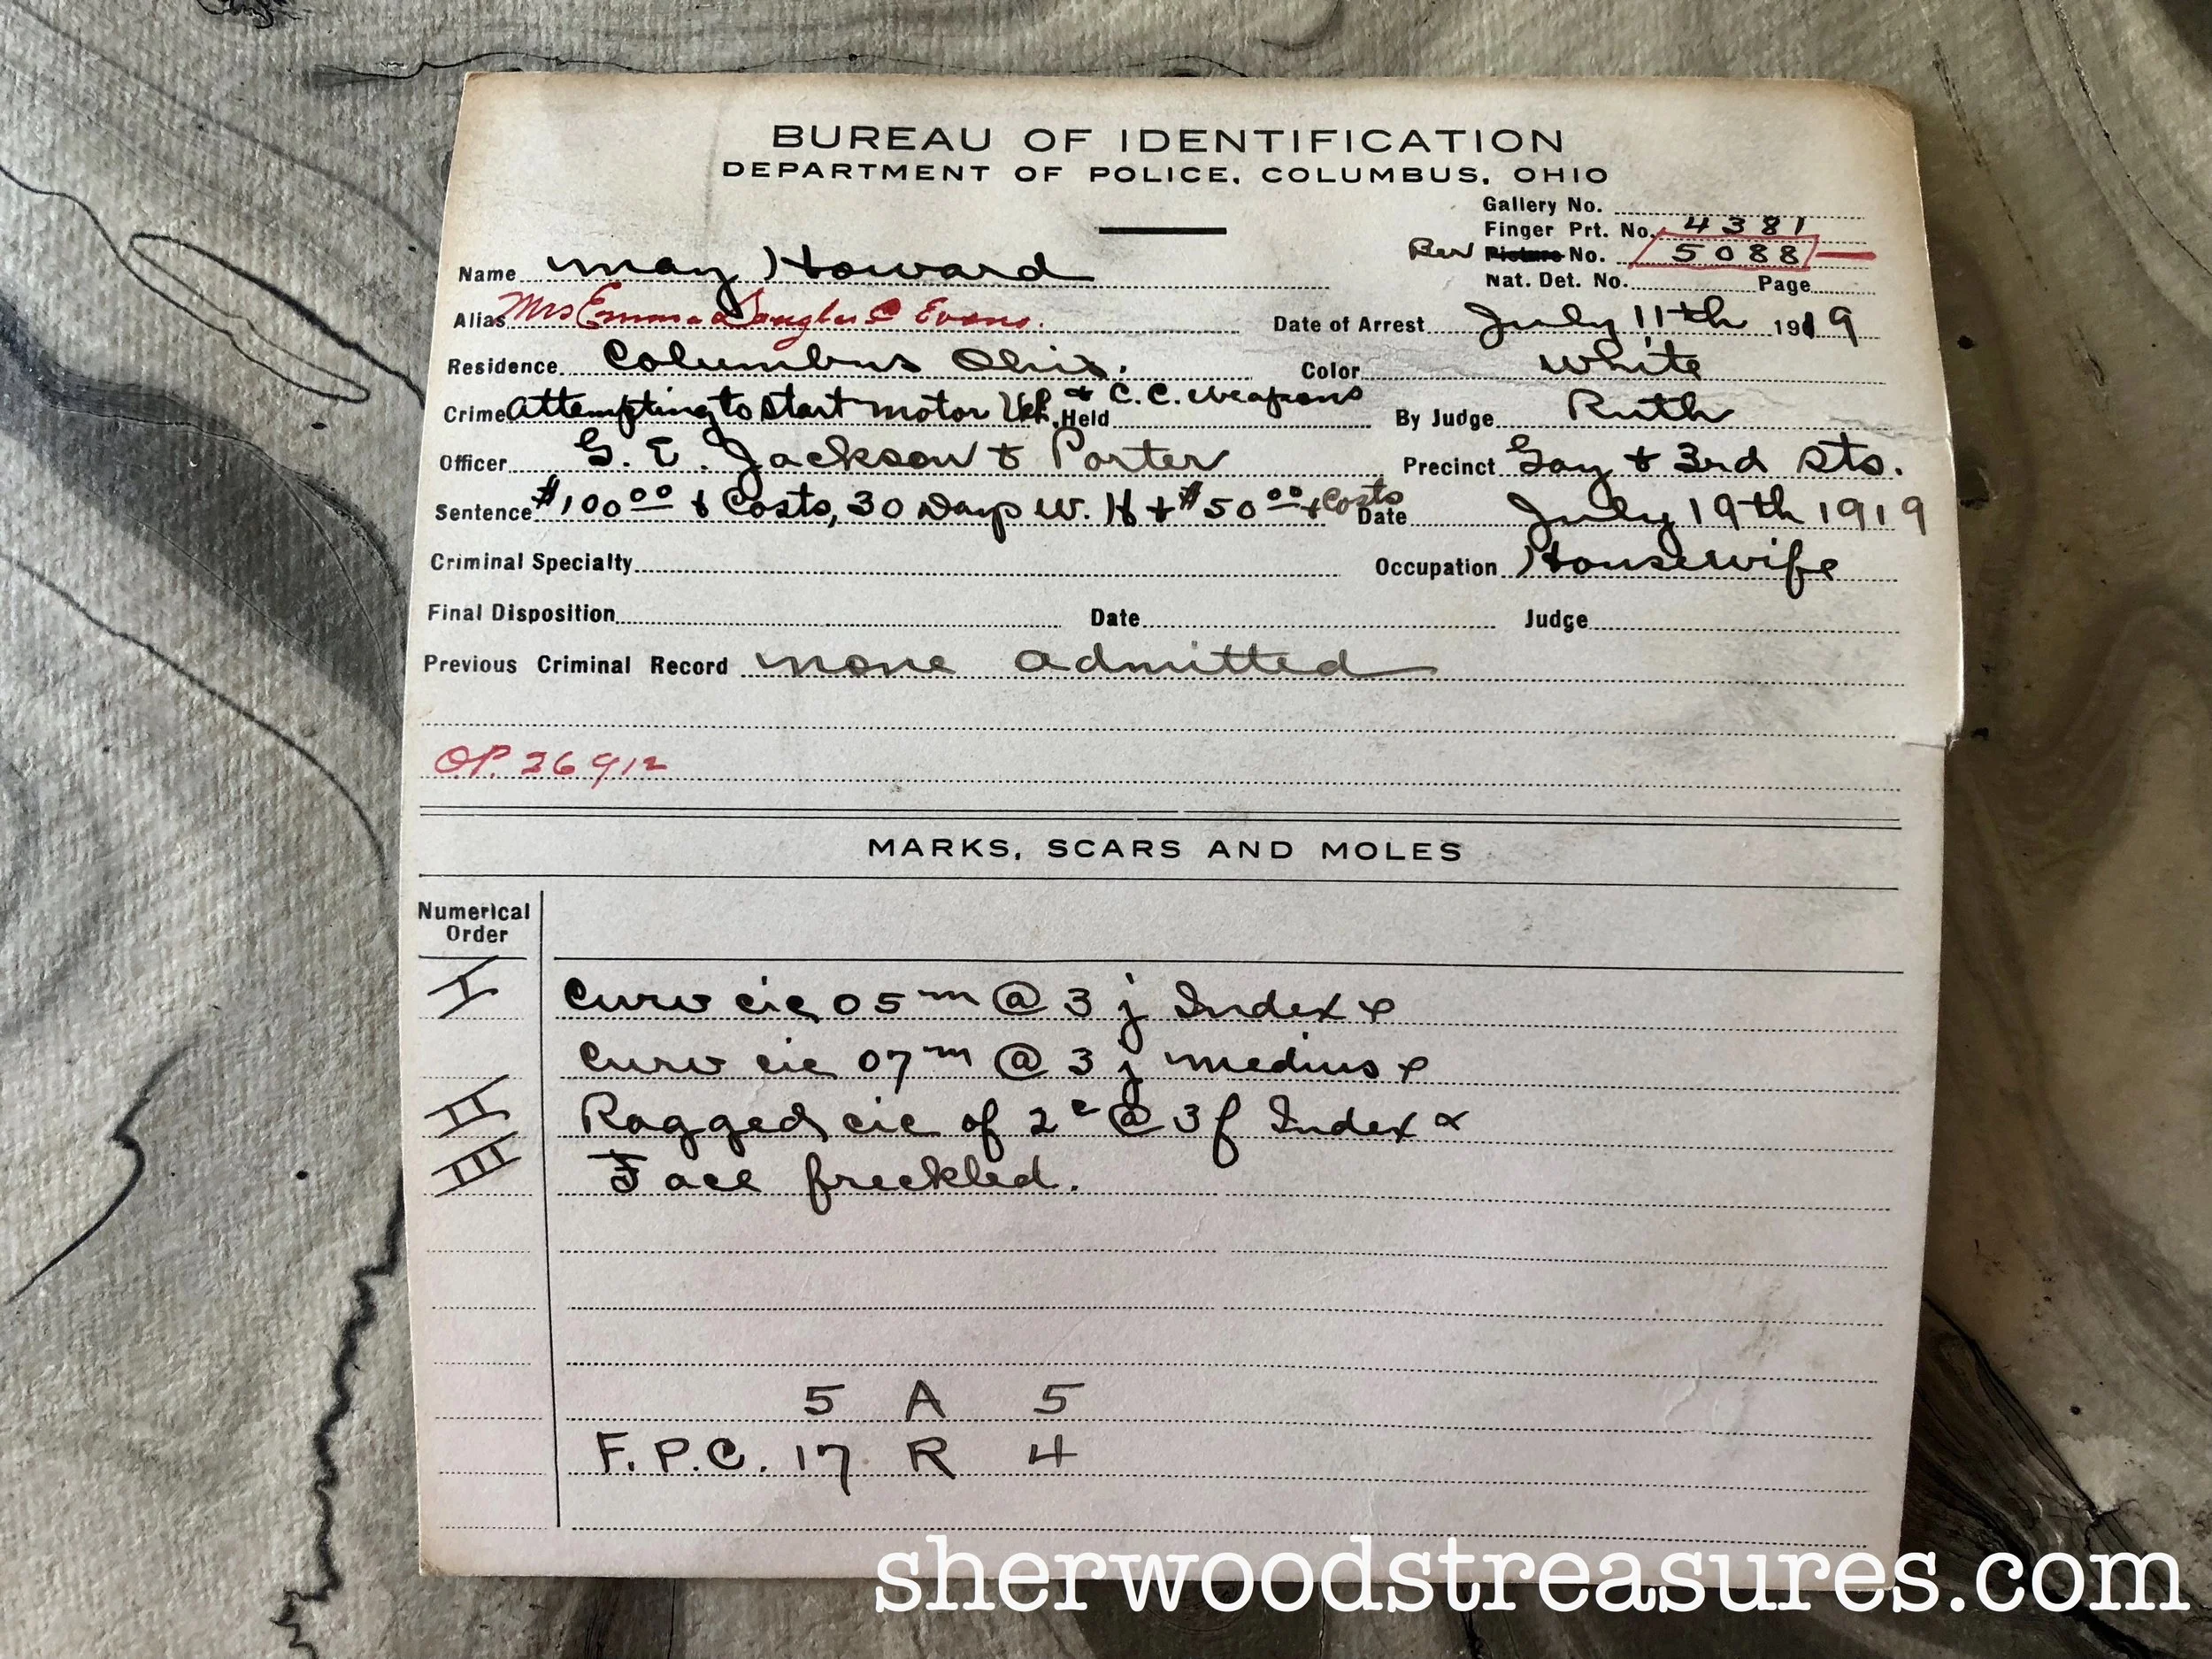 BUREAU OF IDENTIFICATION
DEPARTMENT OF POLICE, COLUMBUS, OHIO
Gallery No.
Finger Prt. No. 4381
Rev Picture No. 5088
Nat. Det. No. Page
Name May Howard
Alias Mrs Emma Douglas Evans.
Date of Arrest July 11th 1919
Residence Columbus Ohio. Color White
Crime Attempting to start motor Veh. & C.C. Weapons Held By Judge Ruth
Officer G. E. Jackson & Porter Precinct Gay & 3rd Sts.
Sentence $100 00 & Costs, 30 Days W. H & $50 00 & Costs Date July 19th 1919
Criminal Specialty Occupation Housewife
Final Disposition Date Judge
Previous Criminal Record none admitted
O.P. 26912
MARKS, SCARS AND MOLES
Numerical
Order
I Curv cic 05 m @ 3 j Index
Curv cic 07 m @ 3 j medius
II Ragged cic of 2 c @ 3 f Index
III Face freckled.
5 A 5
F.P.C. 17 R 4
sherwoodstreasures.com